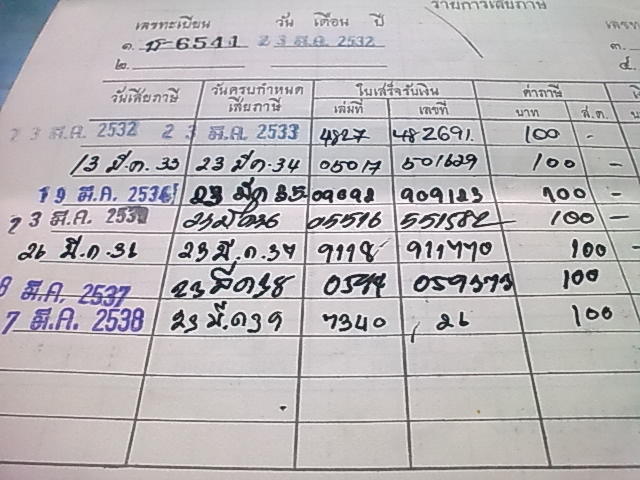 รายการเสียภาษี
เลขทะเบียน วัน เดือน ปี เลขทะ
๑. 6541 23 มี.ค. 2532 ๓.
๒. ๔.
วันเสียภาษี วันครบกำหนดเสียภาษี ใบเสร็จรับเงิน ค่าภาษี
เล่มที่ เลขที่ บาท ส.ต.
23 มี.ค. 2532 23 มี.ค. 2533 4827 482691. 100 -
13 มี.ค. 33 23 มี.ค. 34 05017 501629 100 -
19 มี.ค. 2534 23 มี.ค. 35 09092 909123 100 -
23 มี.ค. 23 มีค 36 05516 551582 100 -
26 มี.ค. 36 23 มี.ค. 37 9118 911770 100 -
8 มี.ค. 2537 23 มีค 38 0594 059373 100
7 มี.ค. 2538 23 มี.ค 39 7340 26 100